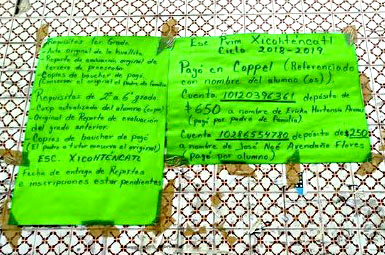 Requisitos 1er. Grado.
Acta original de la huellita.
Reporte de evaluación original de
tercero de preescolar
Copias de boucher de pago.
(Conservar el original el padre de familia)
Requisitos de 2° a 6° grado.
Curp actualizada del alumno (cop)
Original de Reporte de evaluación
del grado anterior.
Copias de boucher de pago
(El padre o tutor conserva el original)
ESC. XICOHTENCATL
Fecha de entrega de Reportes
e inscripciones estar pendientes
Esc Prim Xicohténcatl
Ciclo 2018-2019
Pago en Coppel (Referenciado
con nombre del alumno (os)).
Cuenta 1012039636 depósito de
$650 a nombre de Hortensia
(pago por padre de familia)
Cuenta 10286554780 depósito de $250
a nombre de José Noé Avendaño Flores
(pago por alumno)